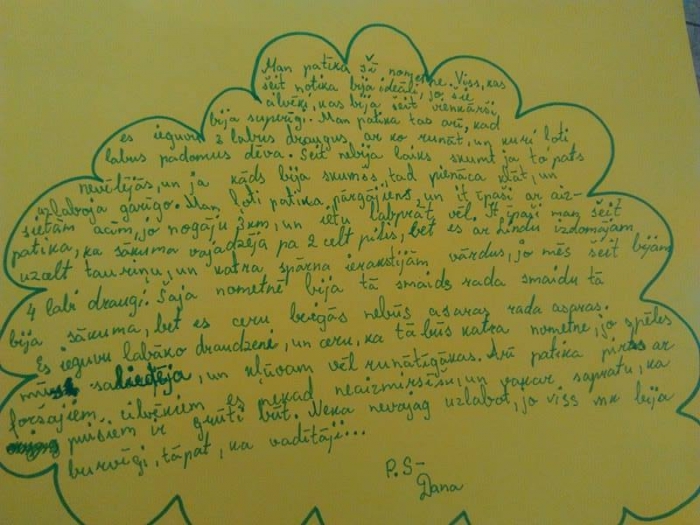 Man patika šī nometne. Viss, kas
šeit notika bija ideāli, jo šie
cilvēki, kas bija šeit vienkārši
bija superīgi. Man patika tas arī, kad
es ieguvu 3 labus draugus, ar ko runāt, un kuri ļoti
labus padomus deva. Šeit nebija laiks skumt ja tā pats
nevēlējās, un ja kāds bija skumjš, tad pienāca klāt, un
uzlaboja garīgo. Man ļoti patika pārgājiens, un it īpaši ar aiz-
sietām acīm, jo nogāju 3km, un ietu labprāt vēl. It īpaši man šeit
patika, ka sākuma vajadzēja pa 2 celt pilis, bet es ar Lindu izdomājām
uzcelt tauriņu, un katra spārna ierakstījām vārdus, jo mēs šeit bijām
4 labi draugi. Šajā nometnē bija tā smaids rada smaidu tā
bija sākuma, bet es ceru beigās nebūs asaras rada asaras.
Es ieguvu labāko draudzeni, un ceru, ka tā būs katra nometne, jo spēles
mūs saliedēja, un kļūvam vēl runātīgākas. Arī patika ar
foršajiem cilvēkiem es nekad neaizmirsīšu, un vakar sapratu, ka
puišiem ir grūti būt. Neka nevajag uzlabot, jo viss bija
burvīgi, tāpat, ka vadītāji...
P.S-
Dana